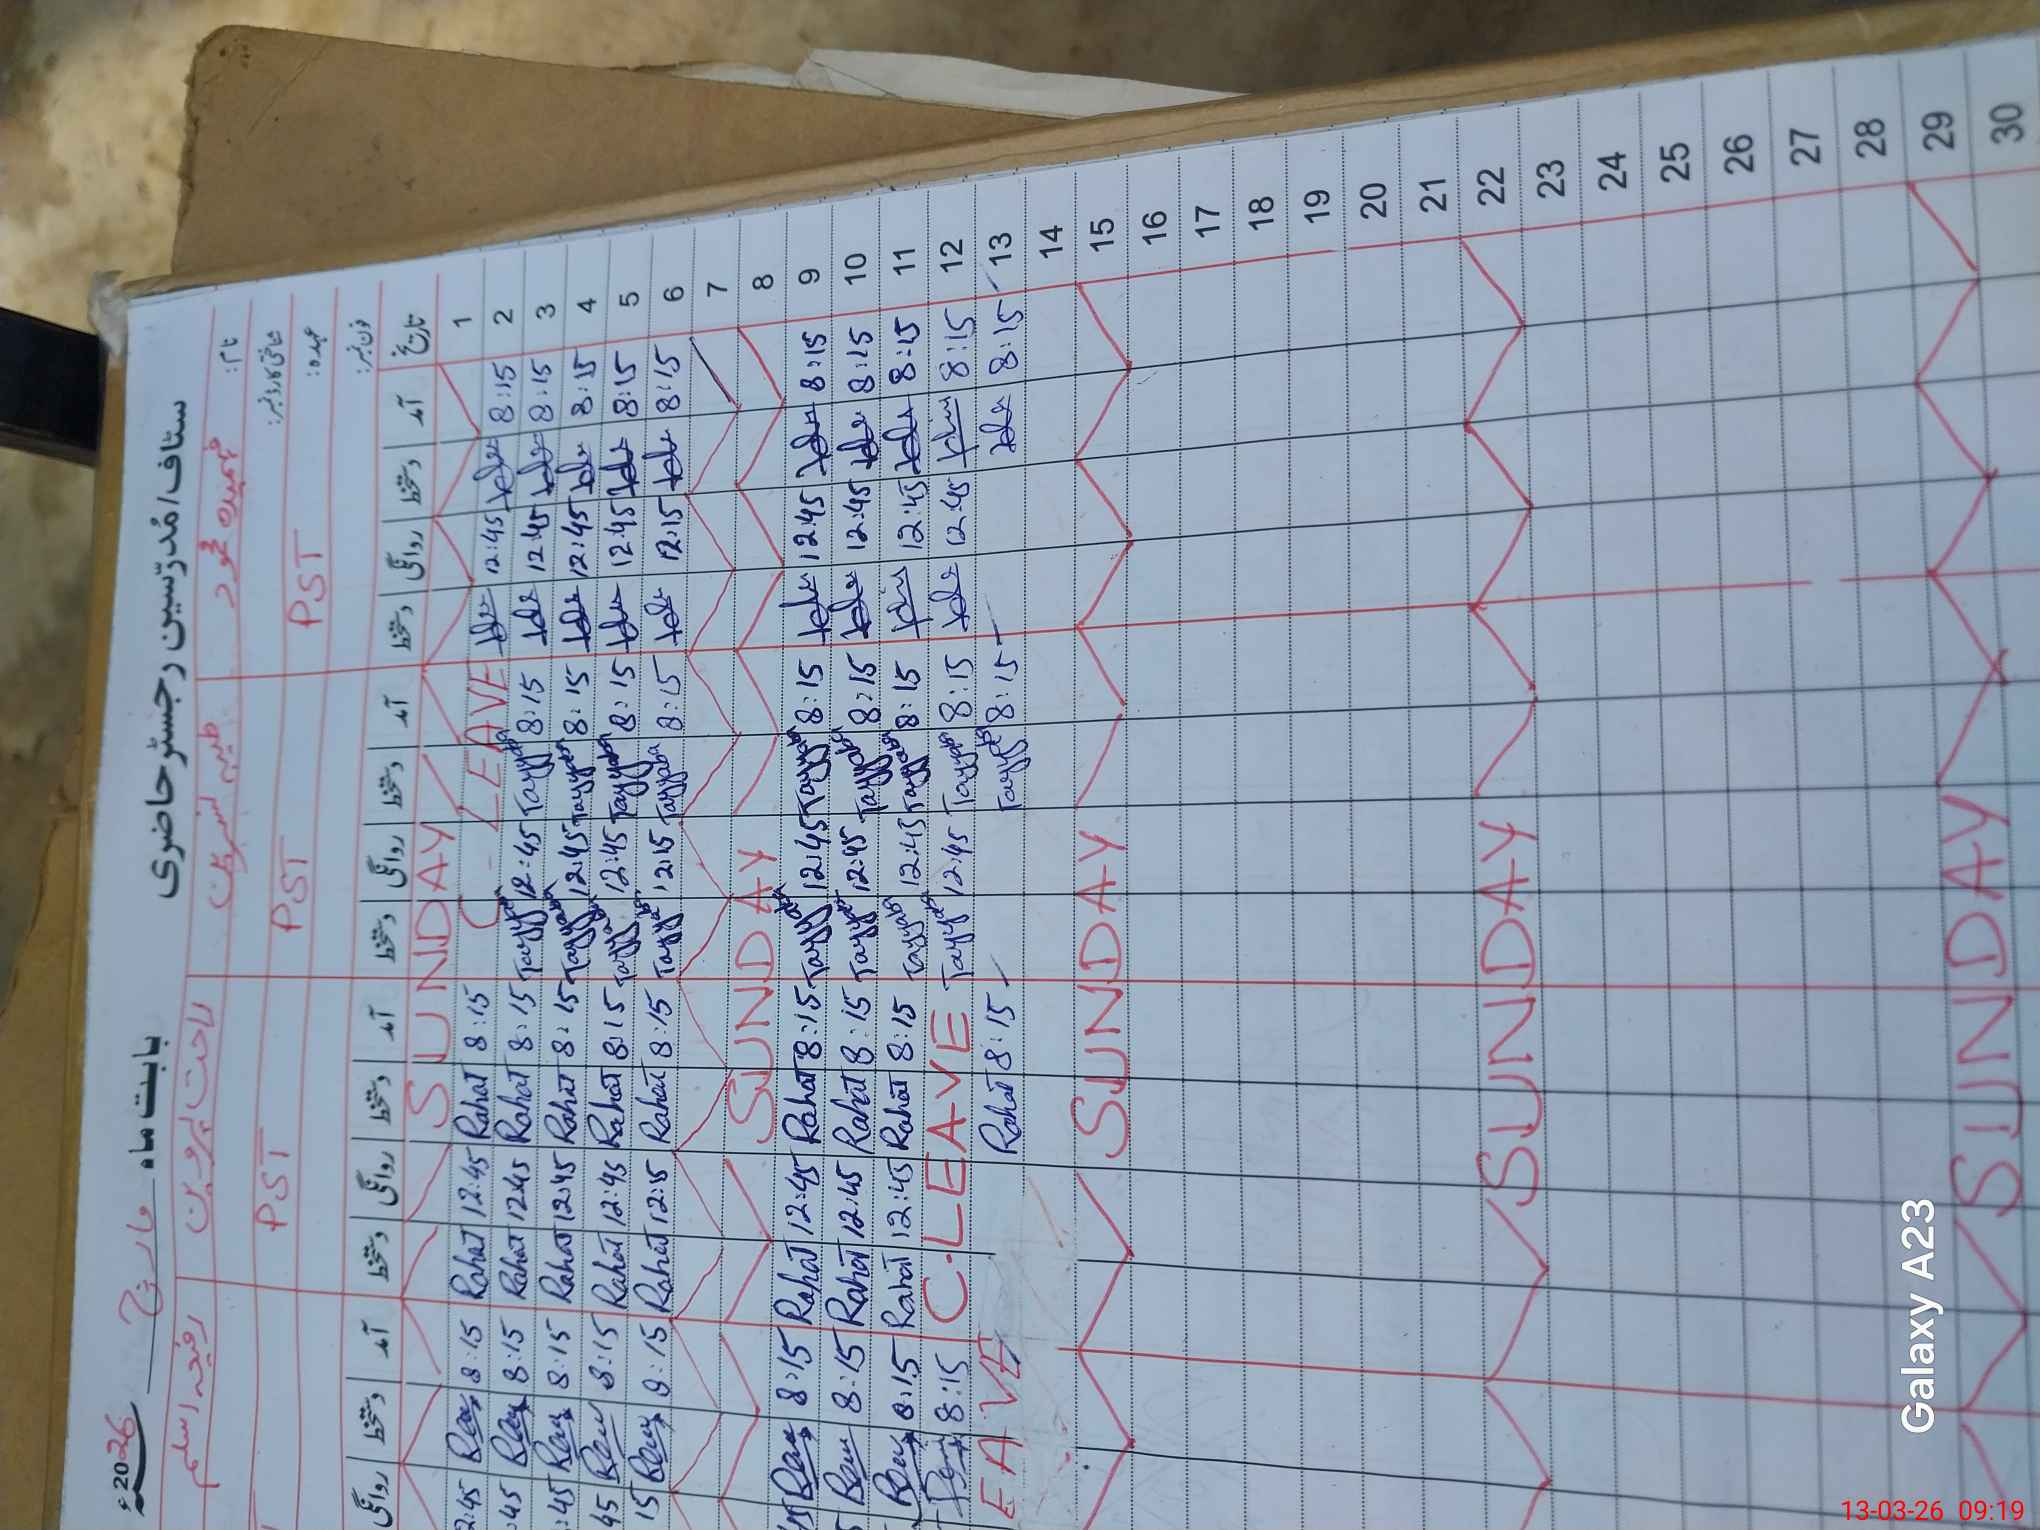 سٹاف/مُدرّسین رجسٹر حاضری بابت ماہ مارچ 2026ء
نام: فہمیدہ محمود طیبہ تبسم راحت پروین رفیعہ اسلم
شناختی کارڈ نمبر:
عہدہ: PST PST PST
فون نمبر:
تاریخ آمد دستخط روانگی دستخط آمد دستخط روانگی دستخط آمد دستخط روانگی دستخط آمد دستخط روانگی
1 SUNDAY
2 8:15 12:45 C-LEAVE 8:15 Rahat 12:45 Rahat 8:15 2:45
3 8:15 12:45 8:15 Tayyaba 12:45 Tayyaba 8:15 Rahat 12:45 Rahat 8:15 :45
4 8:15 12:45 8:15 Tayyaba 12:45 Tayyaba 8:15 Rahat 12:45 Rahat 8:15 :45
5 8:15 12:45 8:15 Tayyaba 12:45 Tayyaba 8:15 Rahat 12:45 Rahat 8:15 45
6 8:15 12:15 8:15 Tayyaba 12:15 Tayyaba 8:15 Rahat 12:15 Rahat 8:15 15
7
8 SUNDAY
9 8:15 12:45 8:15 Tayyaba 12:45 Tayyaba 8:15 Rahat 12:45 Rahat 8:15
10 8:15 12:45 8:15 Tayyaba 12:45 Tayyaba 8:15 Rahat 12:45 Rahat 8:15
11 8:15 12:45 8:15 Tayyaba 12:45 Tayyaba 8:15 Rahat 12:45 Rahat 8:15
12 8:15 12:45 8:15 Tayyaba 12:45 Tayyaba C-LEAVE 8:15
13 8:15 8:15 Tayyaba 8:15 Rahat EAVE
14
15 SUNDAY
16
17
18
19
20
21
22 SUNDAY
23
24
25
26
27
28
29 SUNDAY
30
Galaxy A23
13-03-26 09:19